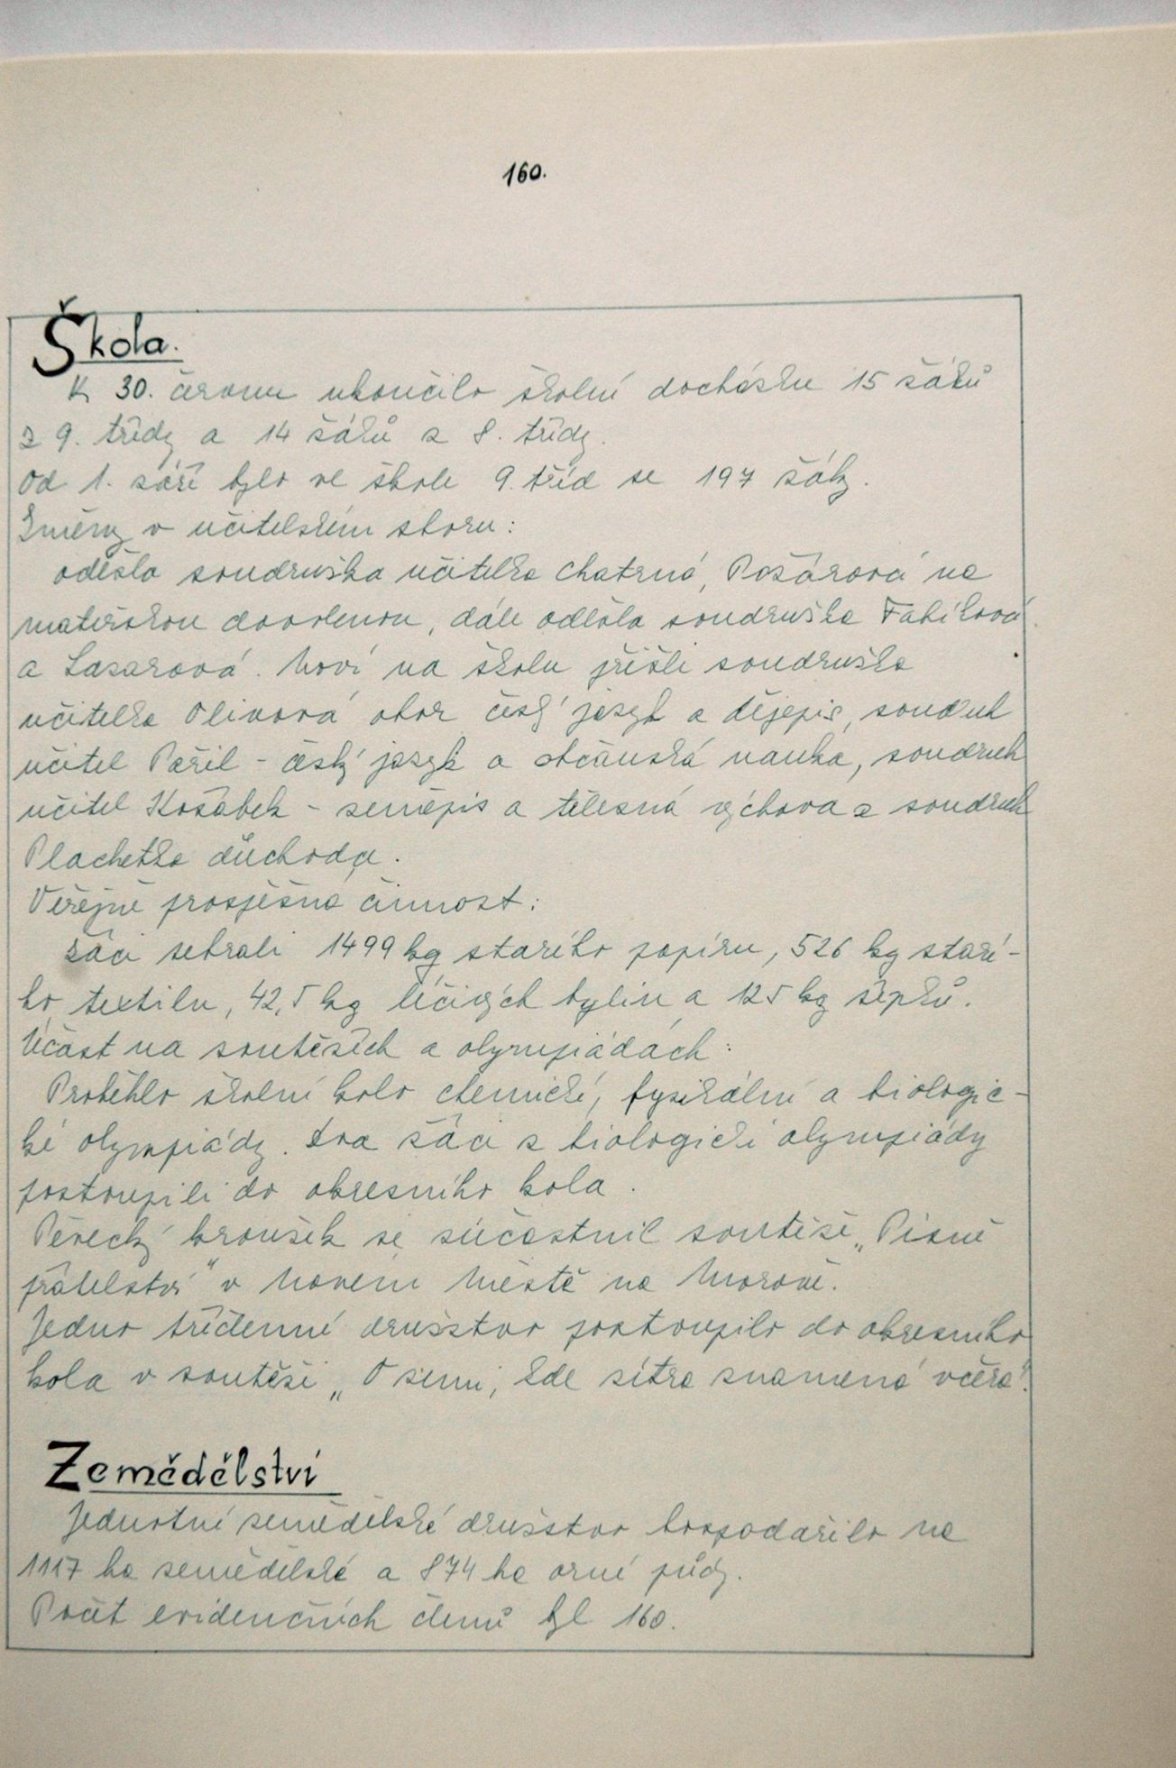 160.
Škola.
K 30. červnu ukončilo školní docházku 15 žáků
z 9. třídy a 14 žáků z 8. třídy.
Od 1. září bylo ve škole 9. tříd se 197 žáky.
Změny v učitelském sboru:
odešla soudružka učitelka Chatrná, Požárová na
mateřskou dovolenou, dále odešla soudružka Fabíková
a Lazarová. Noví na školu přišli soudružka
učitelka Olivová obor český jazyk a dějepis, soudruh
učitel Pařil - český jazyk a občanská nauka, soudruh
učitel Košábek - zeměpis a tělesná výchova a soudruh
Plachetka důchodce.
Veřejně prospěšná činnost:
žáci sebrali 1499 kg starého papíru, 526 kg staré-
ho textilu, 42,5 kg léčivých bylin a 125 kg šípků.
Účast na soutěžích a olympiádách:
Proběhlo školní kolo chemické, fyzikální a biologic-
ké olympiády. Dva žáci z biologické olympiády
postoupili do okresního kola.
Pěvecký kroužek se súčastnil soutěže „Písně
přátelství" v Novém Městě na Moravě.
Jedno tříčlenné družstvo postoupilo do okresního
kola v soutěži „O zemi, kde zítra znamená včera".
Zemědělství
Jednotné zemědělské družstvo hospodařilo na
1117 ha zemědělské a 874 ha orné půdy.
Počet evidenčních členů byl 160.